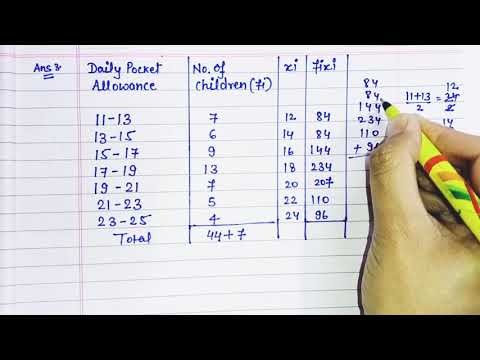 Ans 3.
Daily Pocket Allowance No. Of Children (fi) xi fixi
11-13 7 12 84
13-15 6 14 84
15-17 9 16 144
17-19 13 18 234
19-21 7 20 207
21-23 5 22 110
23-25 4 24 96
Total 44+7
84
84
144
234
110
+ 9
11+13 / 2 = 24 / 2
12
14